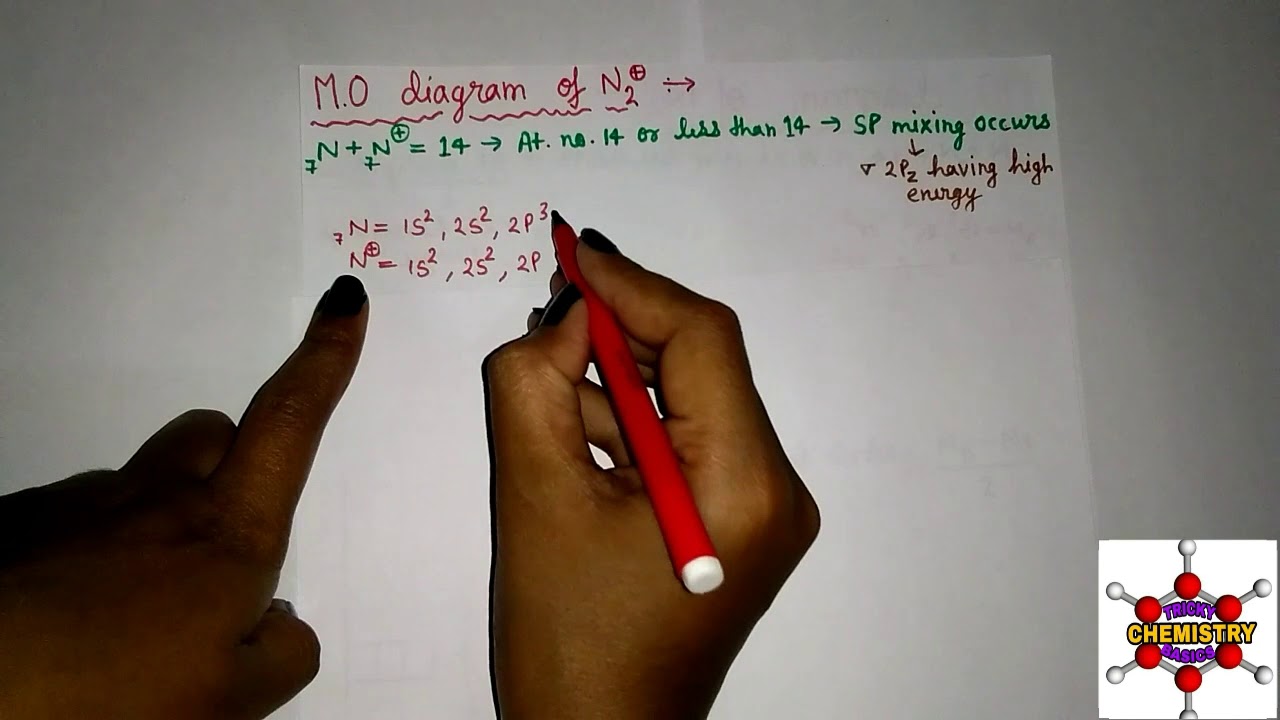 M.O diagram of N₂⊕ ÷→
₇N + ₇N⊕ = 14 → At. no. 14 or less than 14 → SP mixing occurs
↓
σ 2Pz having high
energy
₇N = 1S², 2S², 2P³
N⊕ = 1S², 2S², 2P
TRICKY
CHEMISTRY
BASICS